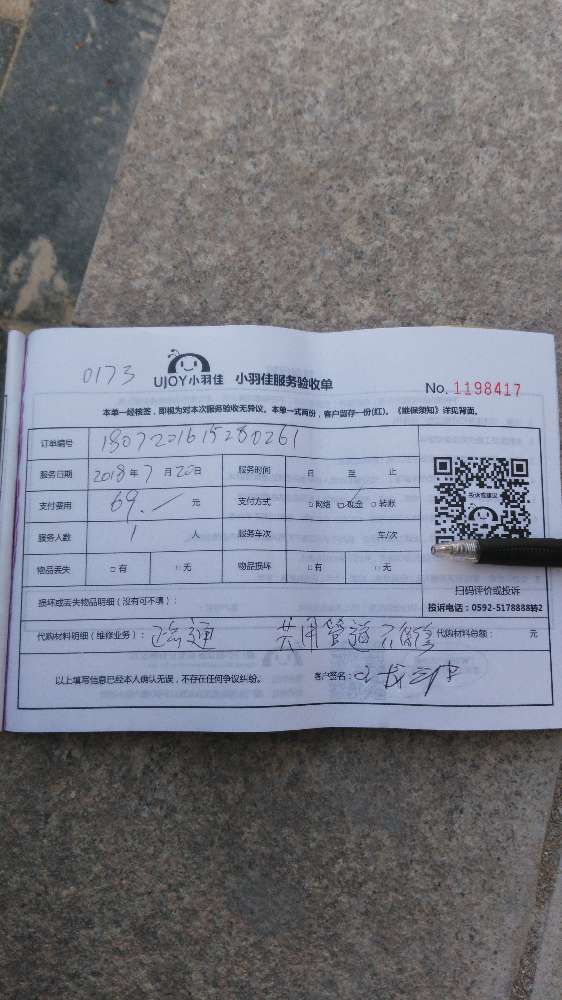 0173
UJOY小羽佳 小羽佳服务验收单
No. 1198417
本单一经核签，即视为对本次服务验收无异议。本单一式两份，客户留存一份(红)。《维保须知》详见背面。
订单编号 1807201615280261
服务日期 2018年7月20日 服务时间 日 至 止
支付费用 69.— 元 支付方式 □网络 ☑现金 □转账
服务人数 1 人 服务车次 车/次
物品丢失 □有 □无 物品损坏 □有 □无
投诉或建议
扫码评价或投诉
投诉电话：0592-5178888转2
损坏或丢失物品明细（没有可不填）：
代购材料明细（维修业务）： 疏通 共用管道不保修 代购材料总额： 元
以上填写信息已经本人确认无误，不存在任何争议纠纷。 客户签名：